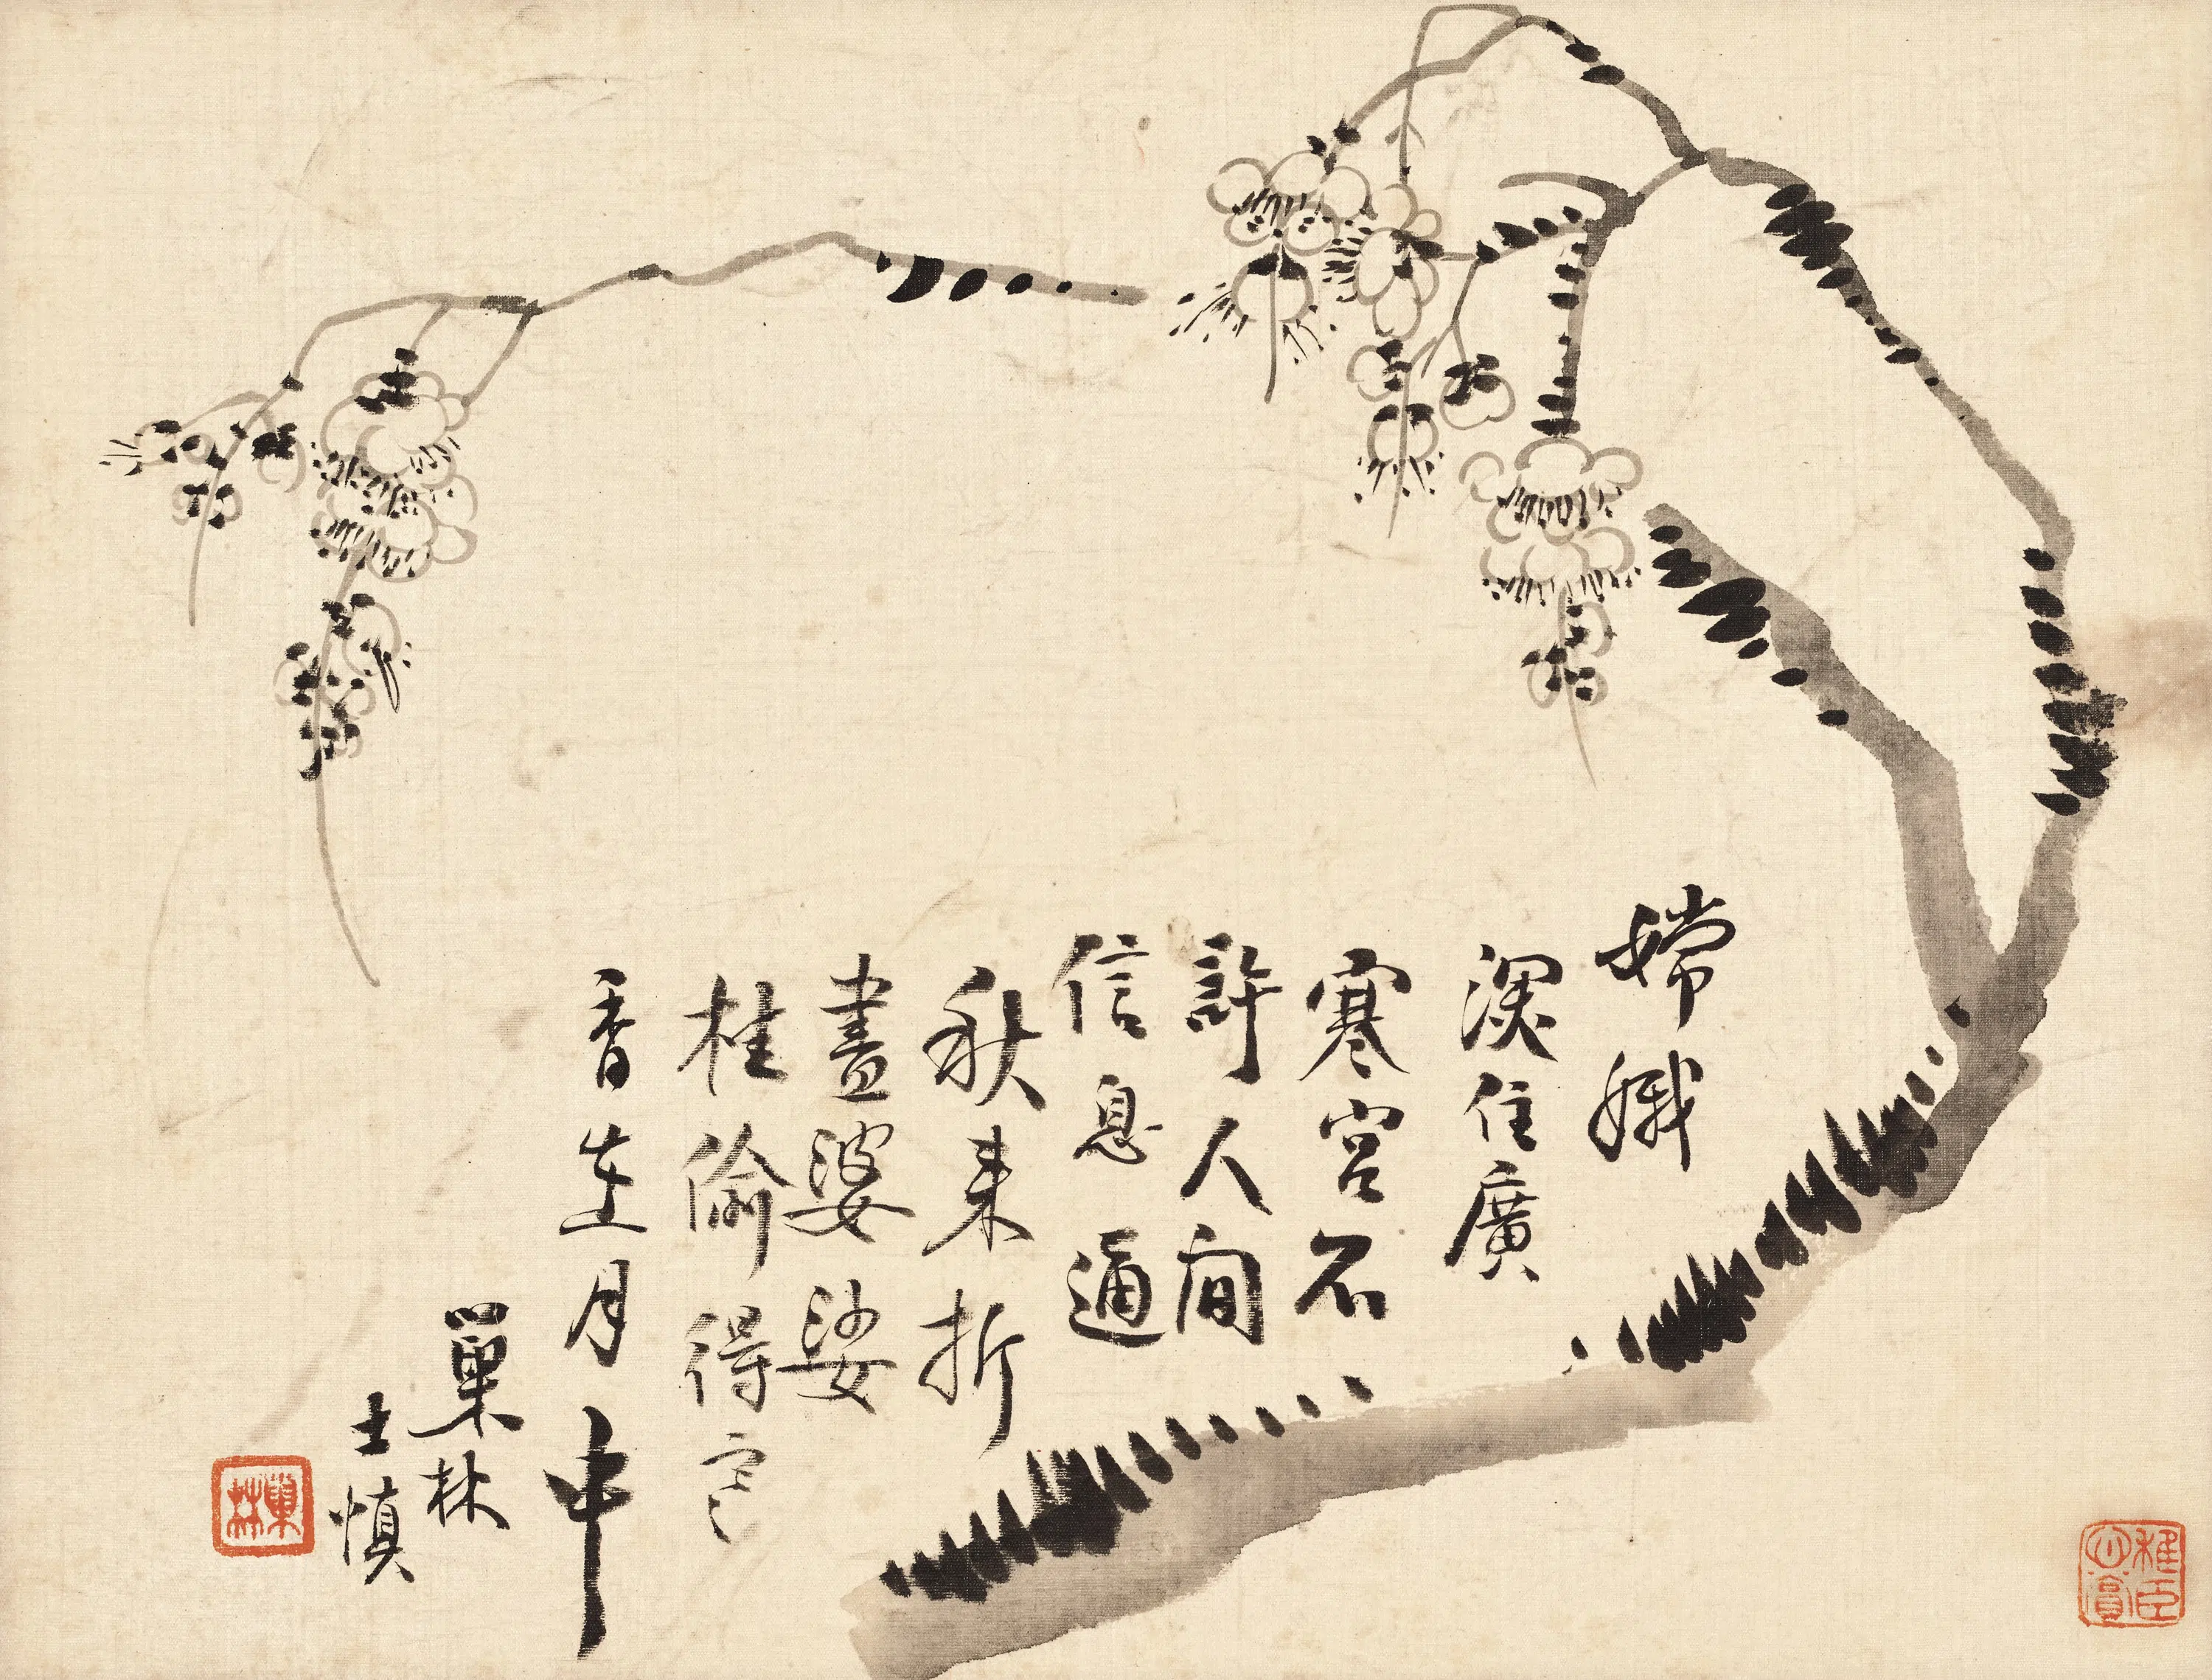 嫦娥
深住廣
寒宮不
許人間
信息通
秋來折
盡婆娑
桂偷得它
香在月中
巢林
士慎
巢林